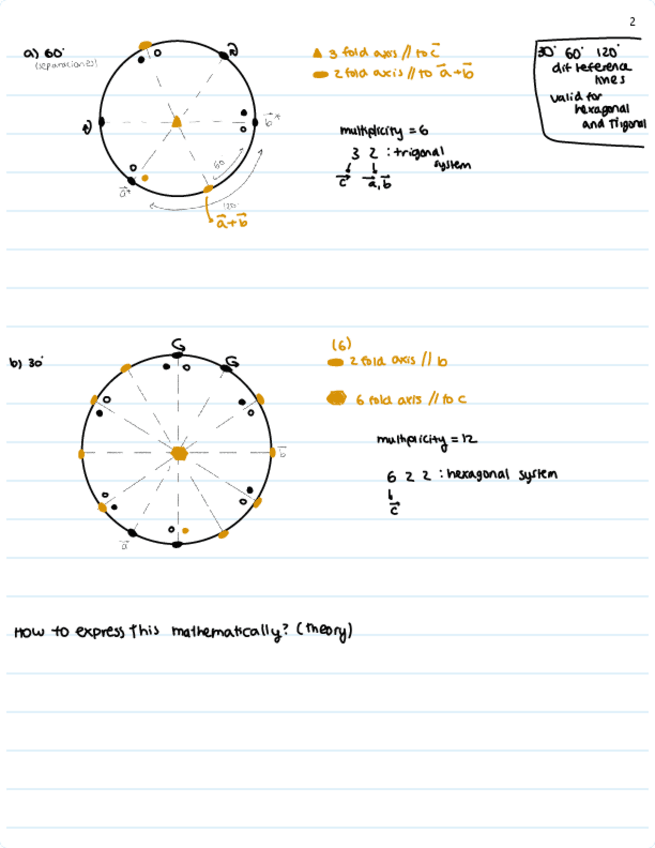 2
a) 60°
(separaciones)
3 fold axis // to c
2 fold axis // to a+b
30° 60° 120°
dif reference
lines
valid for
hexagonal
and Trigonal
multiplicity = 6
3 2 : trigonal
system
c a,b
b*
60
a*
120°
a+b
b) 30°
(6)
2 fold axis // b
6 fold axis // to c
multiplicity = 12
b
6 2 2 : hexagonal system
c
a
How to express this mathematically? (Theory)